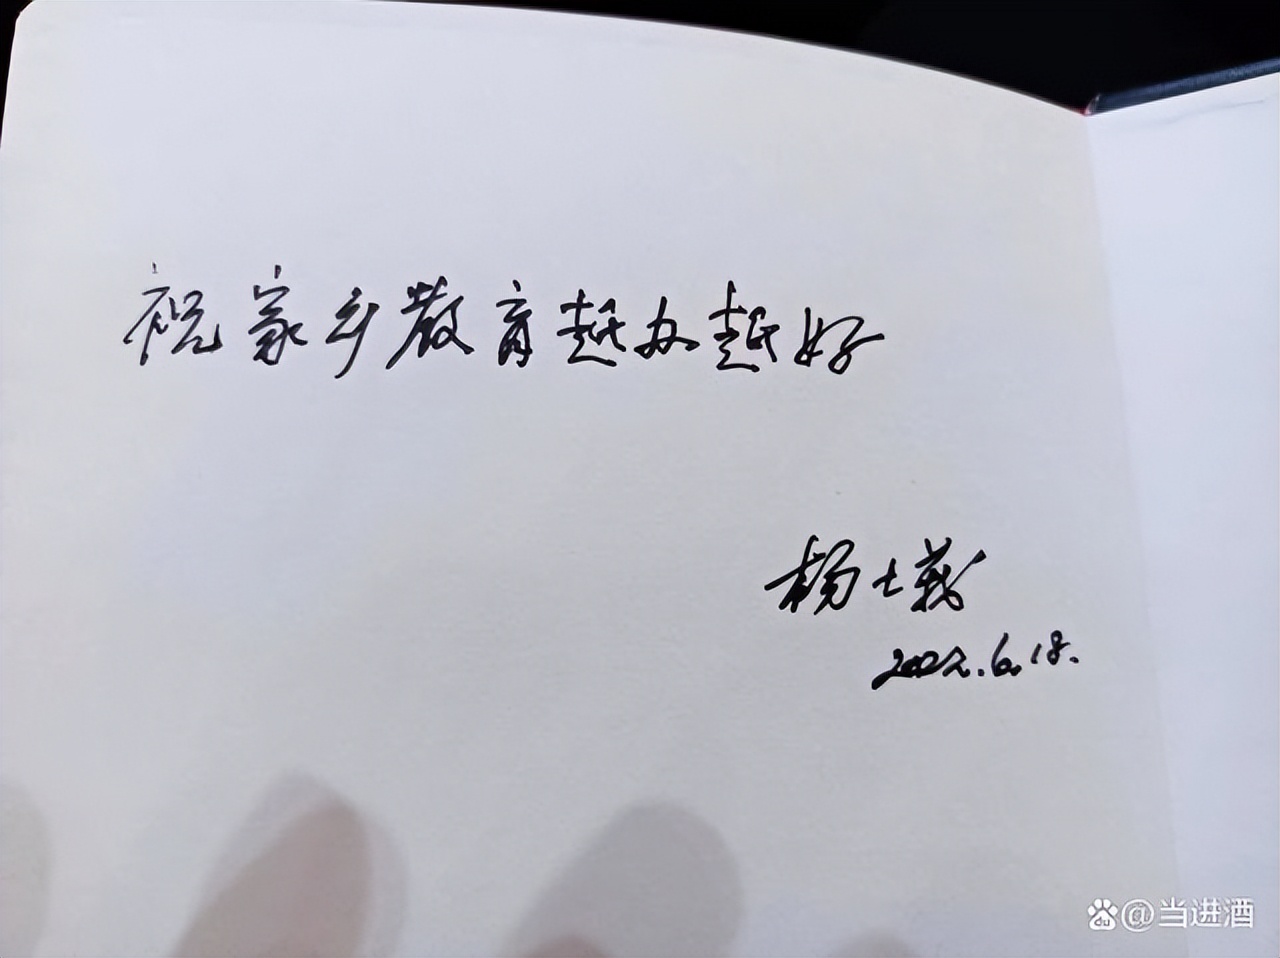 祝家乡教育越办越好
杨士莪
2022.6.18.
Bai du @当进酒